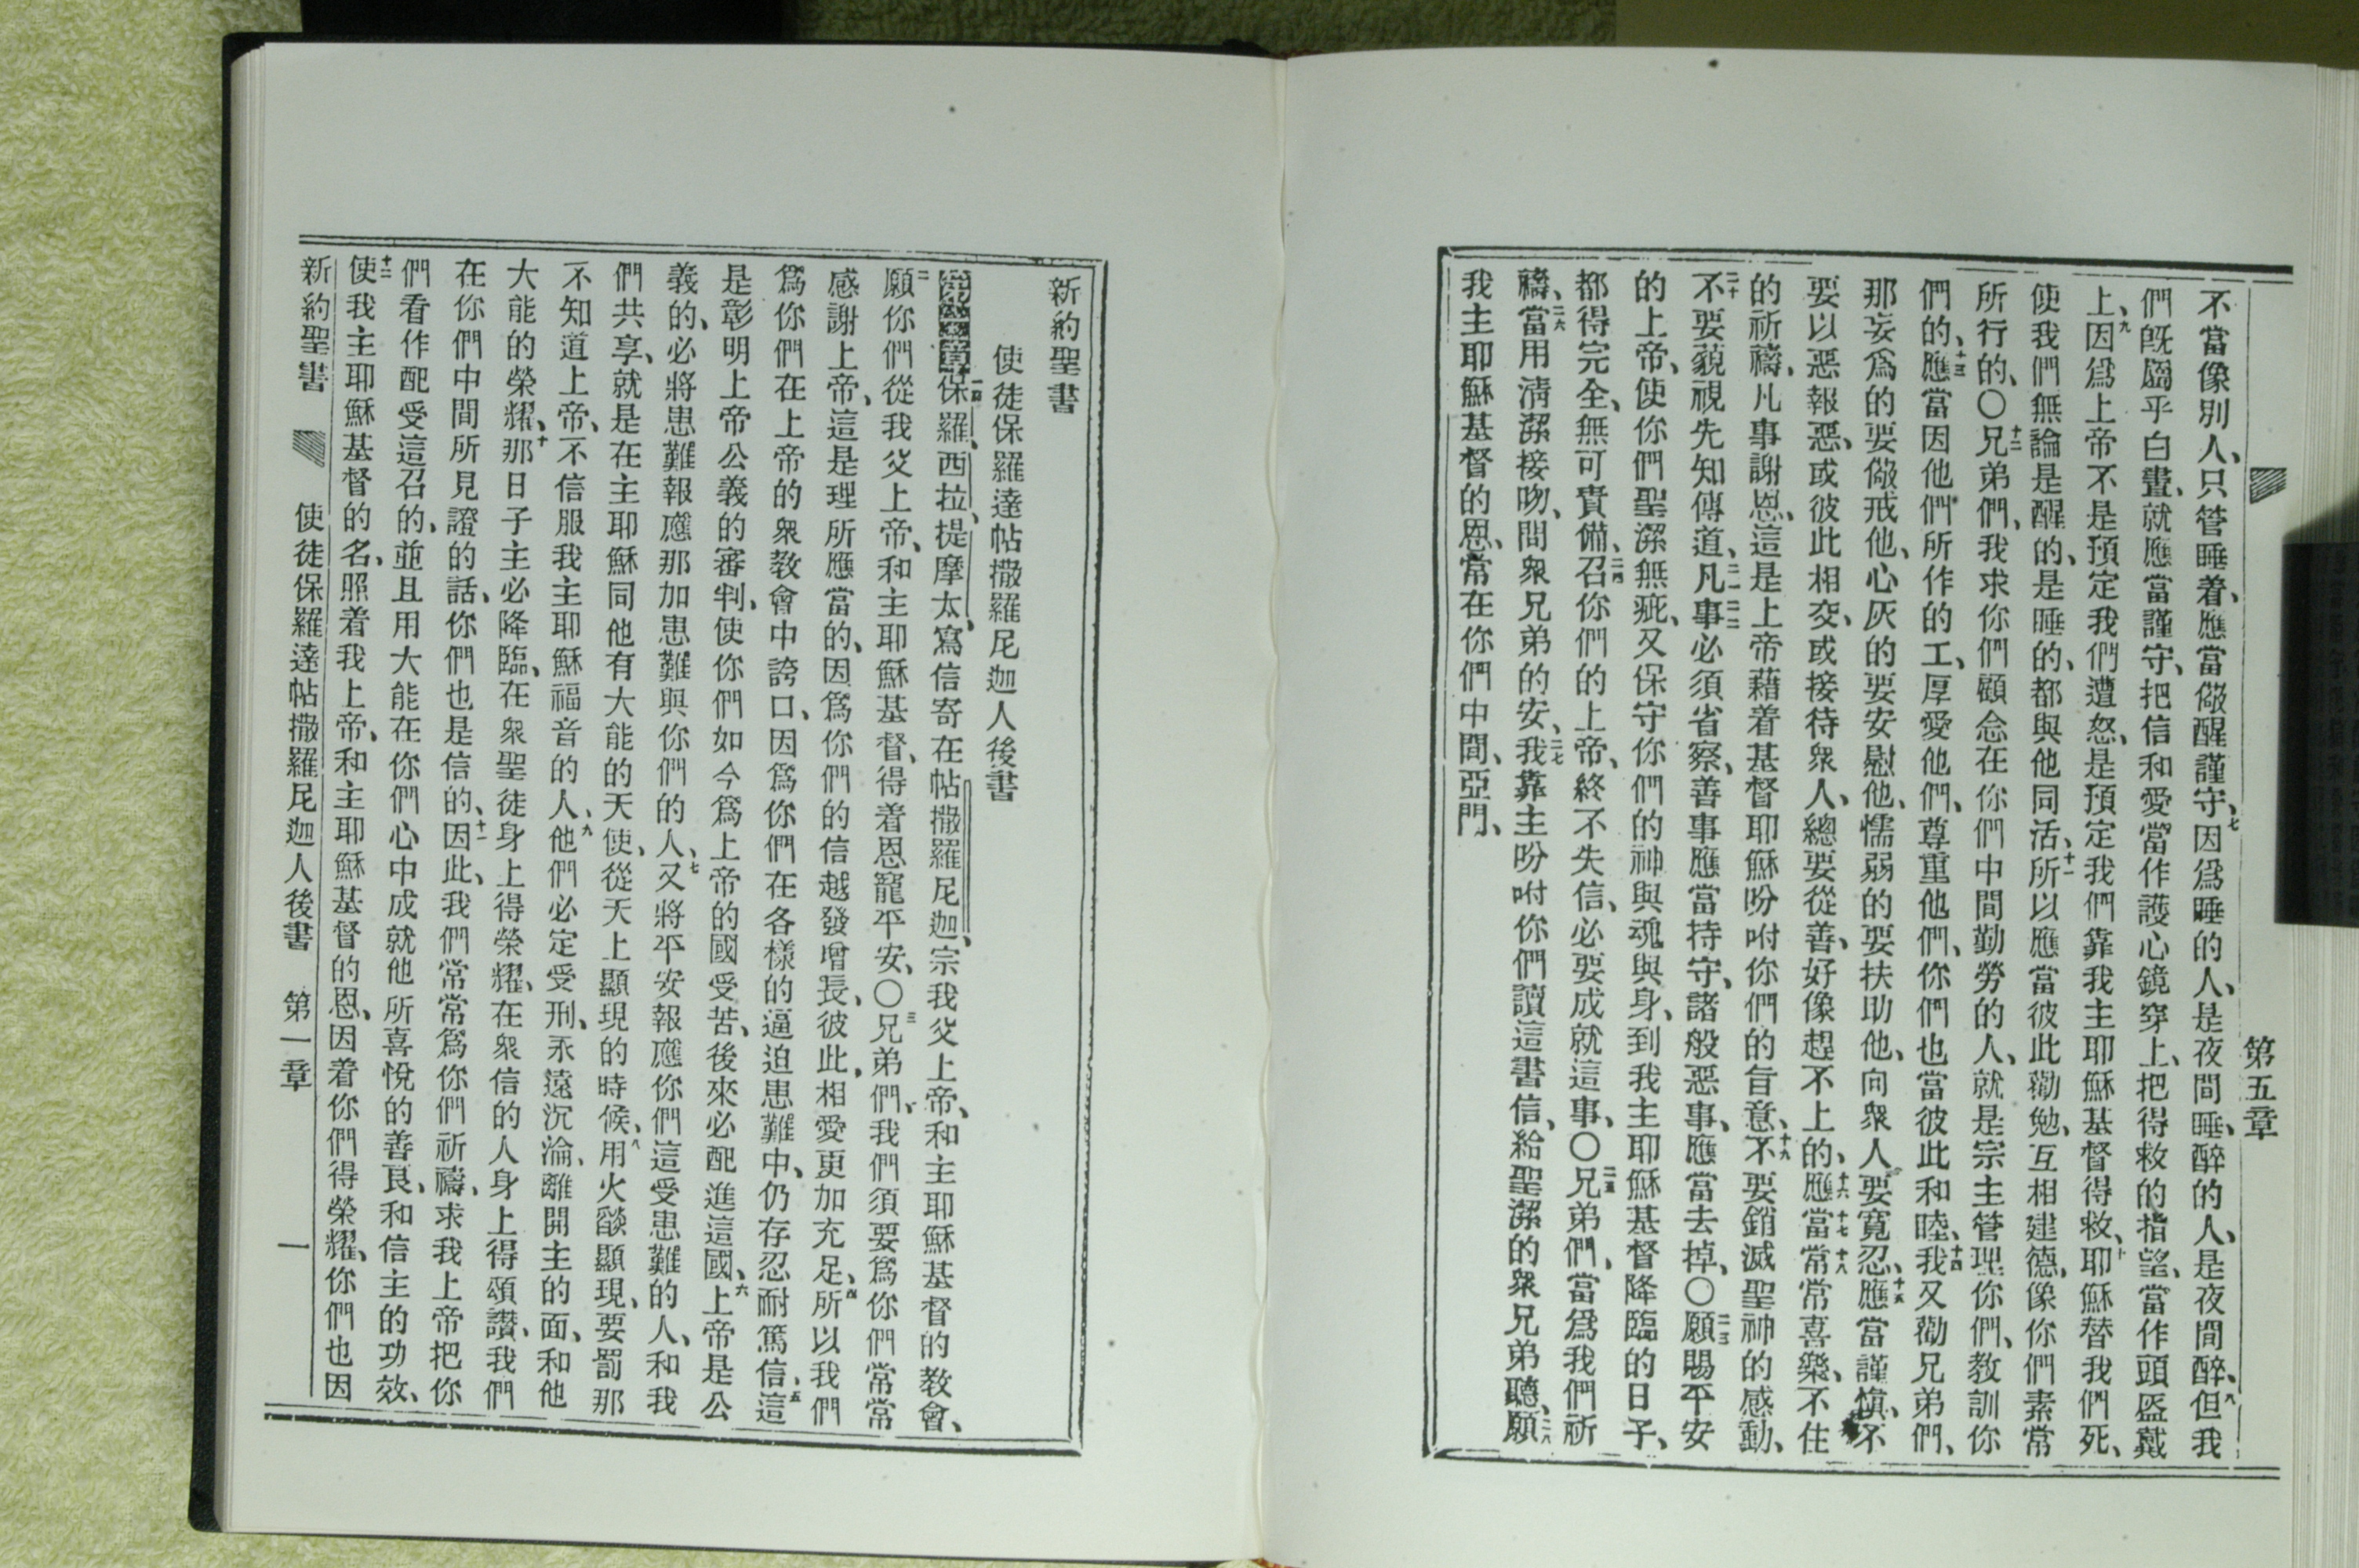 第五章
不當像別人、只管睡着、應當儆醒謹守、七因爲睡的人、是夜間睡、醉的人、是夜間醉、八但我
們旣屬乎白晝、就應當謹守、把信和愛當作護心鏡穿上、把得救的指望、當作頭盔戴
上、九因爲上帝不是預定我們遭怒、是預定我們靠我主耶穌基督得救、十耶穌替我們死、
使我們無論是醒的、是睡的、都與他同活、十一所以應當彼此勸勉、互相建德、像你們素常
所行的、〇十二兄弟們、我求你們顧念在你們中間勤勞的人、就是宗主管理你們、教訓你
們的、十三應當因他們所作的工、厚愛他們、尊重他們、你們也當彼此和睦、十四我又勸兄弟們、
那妄爲的要儆戒他、心灰的要安慰他、懦弱的要扶助他、向衆人要寬忍、十五應當謹愼、不
要以惡報惡、或彼此相交、或接待衆人、總要從善、好像趕不上的、十六應十七當十八常常喜樂、不住
的祈禱、凡事謝恩、這是上帝藉着基督耶穌吩咐你們的旨意、十九不要銷滅聖神的感動、
二十不要藐視先知傳道、二一凡二二事必須省察、善事應當持守、諸般惡事、應當去掉、〇二三願賜平安
的上帝、使你們聖潔無疵、又保守你們的神與魂與身、到我主耶穌基督降臨的日子、
都得完全、無可責備、二四召你們的上帝、終不失信、必要成就這事、〇二五兄弟們、當爲我們祈
禱、二六當用淸潔接吻、問衆兄弟的安、二七我靠主吩咐你們讀這書信、給聖潔的衆兄弟聽、二八願
我主耶穌基督的恩、常在你們中間、亞門、
新約聖書
使徒保羅達帖撒羅尼迦人後書
保羅、西拉、提摩太、寫信寄在帖撒羅尼迦、宗我父上帝、和主耶穌基督的教會、
二願你們從我父上帝、和主耶穌基督、得着恩寵平安、〇三兄弟們、我們須要爲你們常常
感謝上帝、這是理所應當的、因爲你們的信越發增長、彼此相愛更加充足、四所以我們
爲你們在上帝的衆教會中誇口、因爲你們在各樣的逼迫患難中、仍存忍耐篤信、五這
是彰明上帝公義的審判、使你們如今爲上帝的國受苦、後來必配進這國、六上帝是公
義的、必將患難報應那加患難與你們的人、七又將平安報應你們這受患難的人、和我
們共享、就是在主耶穌同他有大能的天使、從天上顯現的時候、八用火燄顯現、要罰那
不知道上帝、不信服我主耶穌福音的人、九他們必定受刑、永遠沉淪、離開主的面、和他
大能的榮耀、十那日子主必降臨、在衆聖徒身上得榮耀、在衆信的人身上得頌讚、我們
在你們中間所見證的話、你們也是信的、十一因此、我們常常爲你們祈禱、求我上帝把你
們看作配受這召的、並且用大能在你們心中成就他所喜悅的善良、和信主的功效、
十二使我主耶穌基督的名、照着我上帝、和主耶穌基督的恩、因着你們得榮耀、你們也因
新約聖書 使徒保羅達帖撒羅尼迦人後書 第一章 一